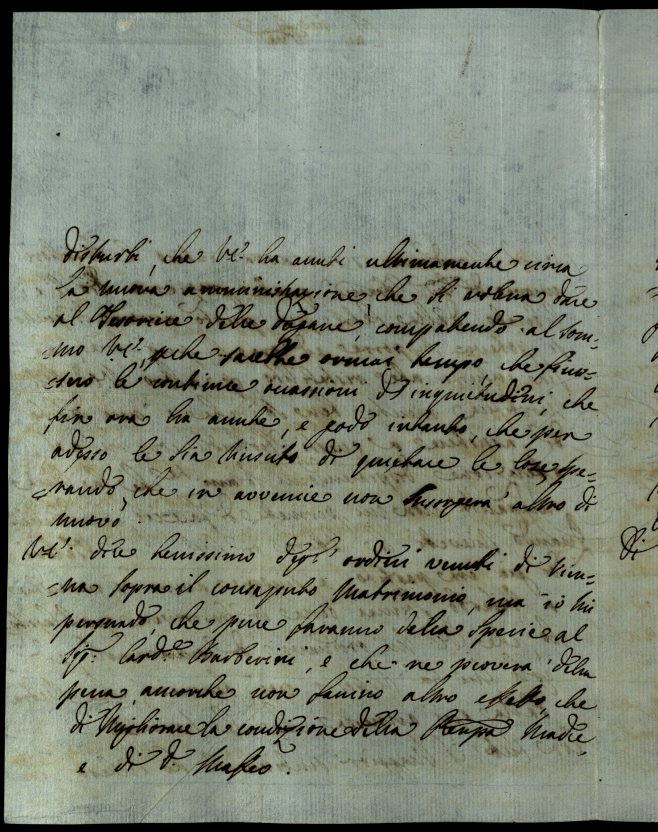 disturbi, che VE. ha auuti ultimamente circa
la nuova amministrazione, che si voleva dare
al Tesoriere delle Dogane, compatendo al som=
=mo VE., che sarebbe ormai tempo, che finis=
=sero le continue occassioni d'inquietudini, che
fin ora ha auute, e godo intanto, che per
adesso le sia riuscito di quietare le cose, spe=
=rando, che in avvenire non insorgerà altro di
nuovo.
VE. dice benissimo degl'ordini venuti di Vien=
=na sopra il consaputo Matrimonio, ma io mi
persuado, che pure faranno della specie al
Sig.r Card.le Barberini, e che ne proverà della
pena, ancorche non faccino altro effetto, che
di migliorare la condizione della Madre,
e di D. Maffeo.
Di